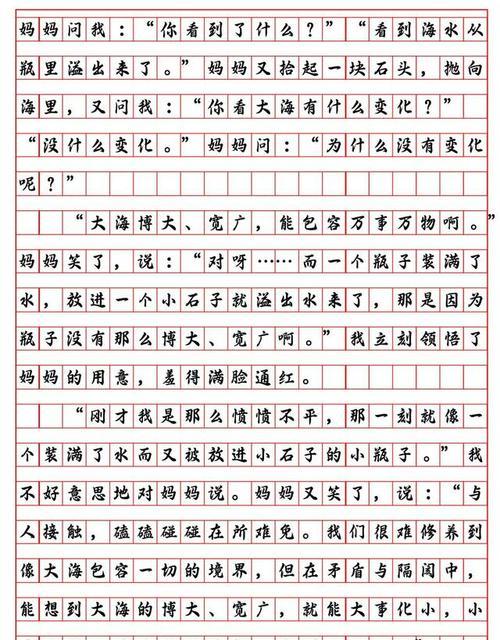 妈妈问我：“你看到了什么？”“看到海水从
瓶里溢出来了。”妈妈又拾起一块石头，抛向
海里，又问我：“你看大海有什么变化？”
“没什么变化。”妈妈问：“为什么没有变化
呢？”
“大海博大、宽广，能包容万事万物啊。”
妈妈笑了，说：“对呀……而一个瓶子装满了
水，放进一个小石子就溢出水来了，那是因为
瓶子没有那么博大、宽广啊。”我立刻领悟了
妈妈的用意，羞得满脸通红。
“刚才我是那么愤愤不平，那一刻就像一
个装满了水而又被放进小石子的小瓶子。”我
不好意思地对妈妈说。妈妈又笑了，说：“与
人接触，磕磕碰碰在所难免。我们很难修养到
像大海包容一切的境界，但在矛盾与隔阂中，
能想到大海的博大、宽广，就能大事化小，小